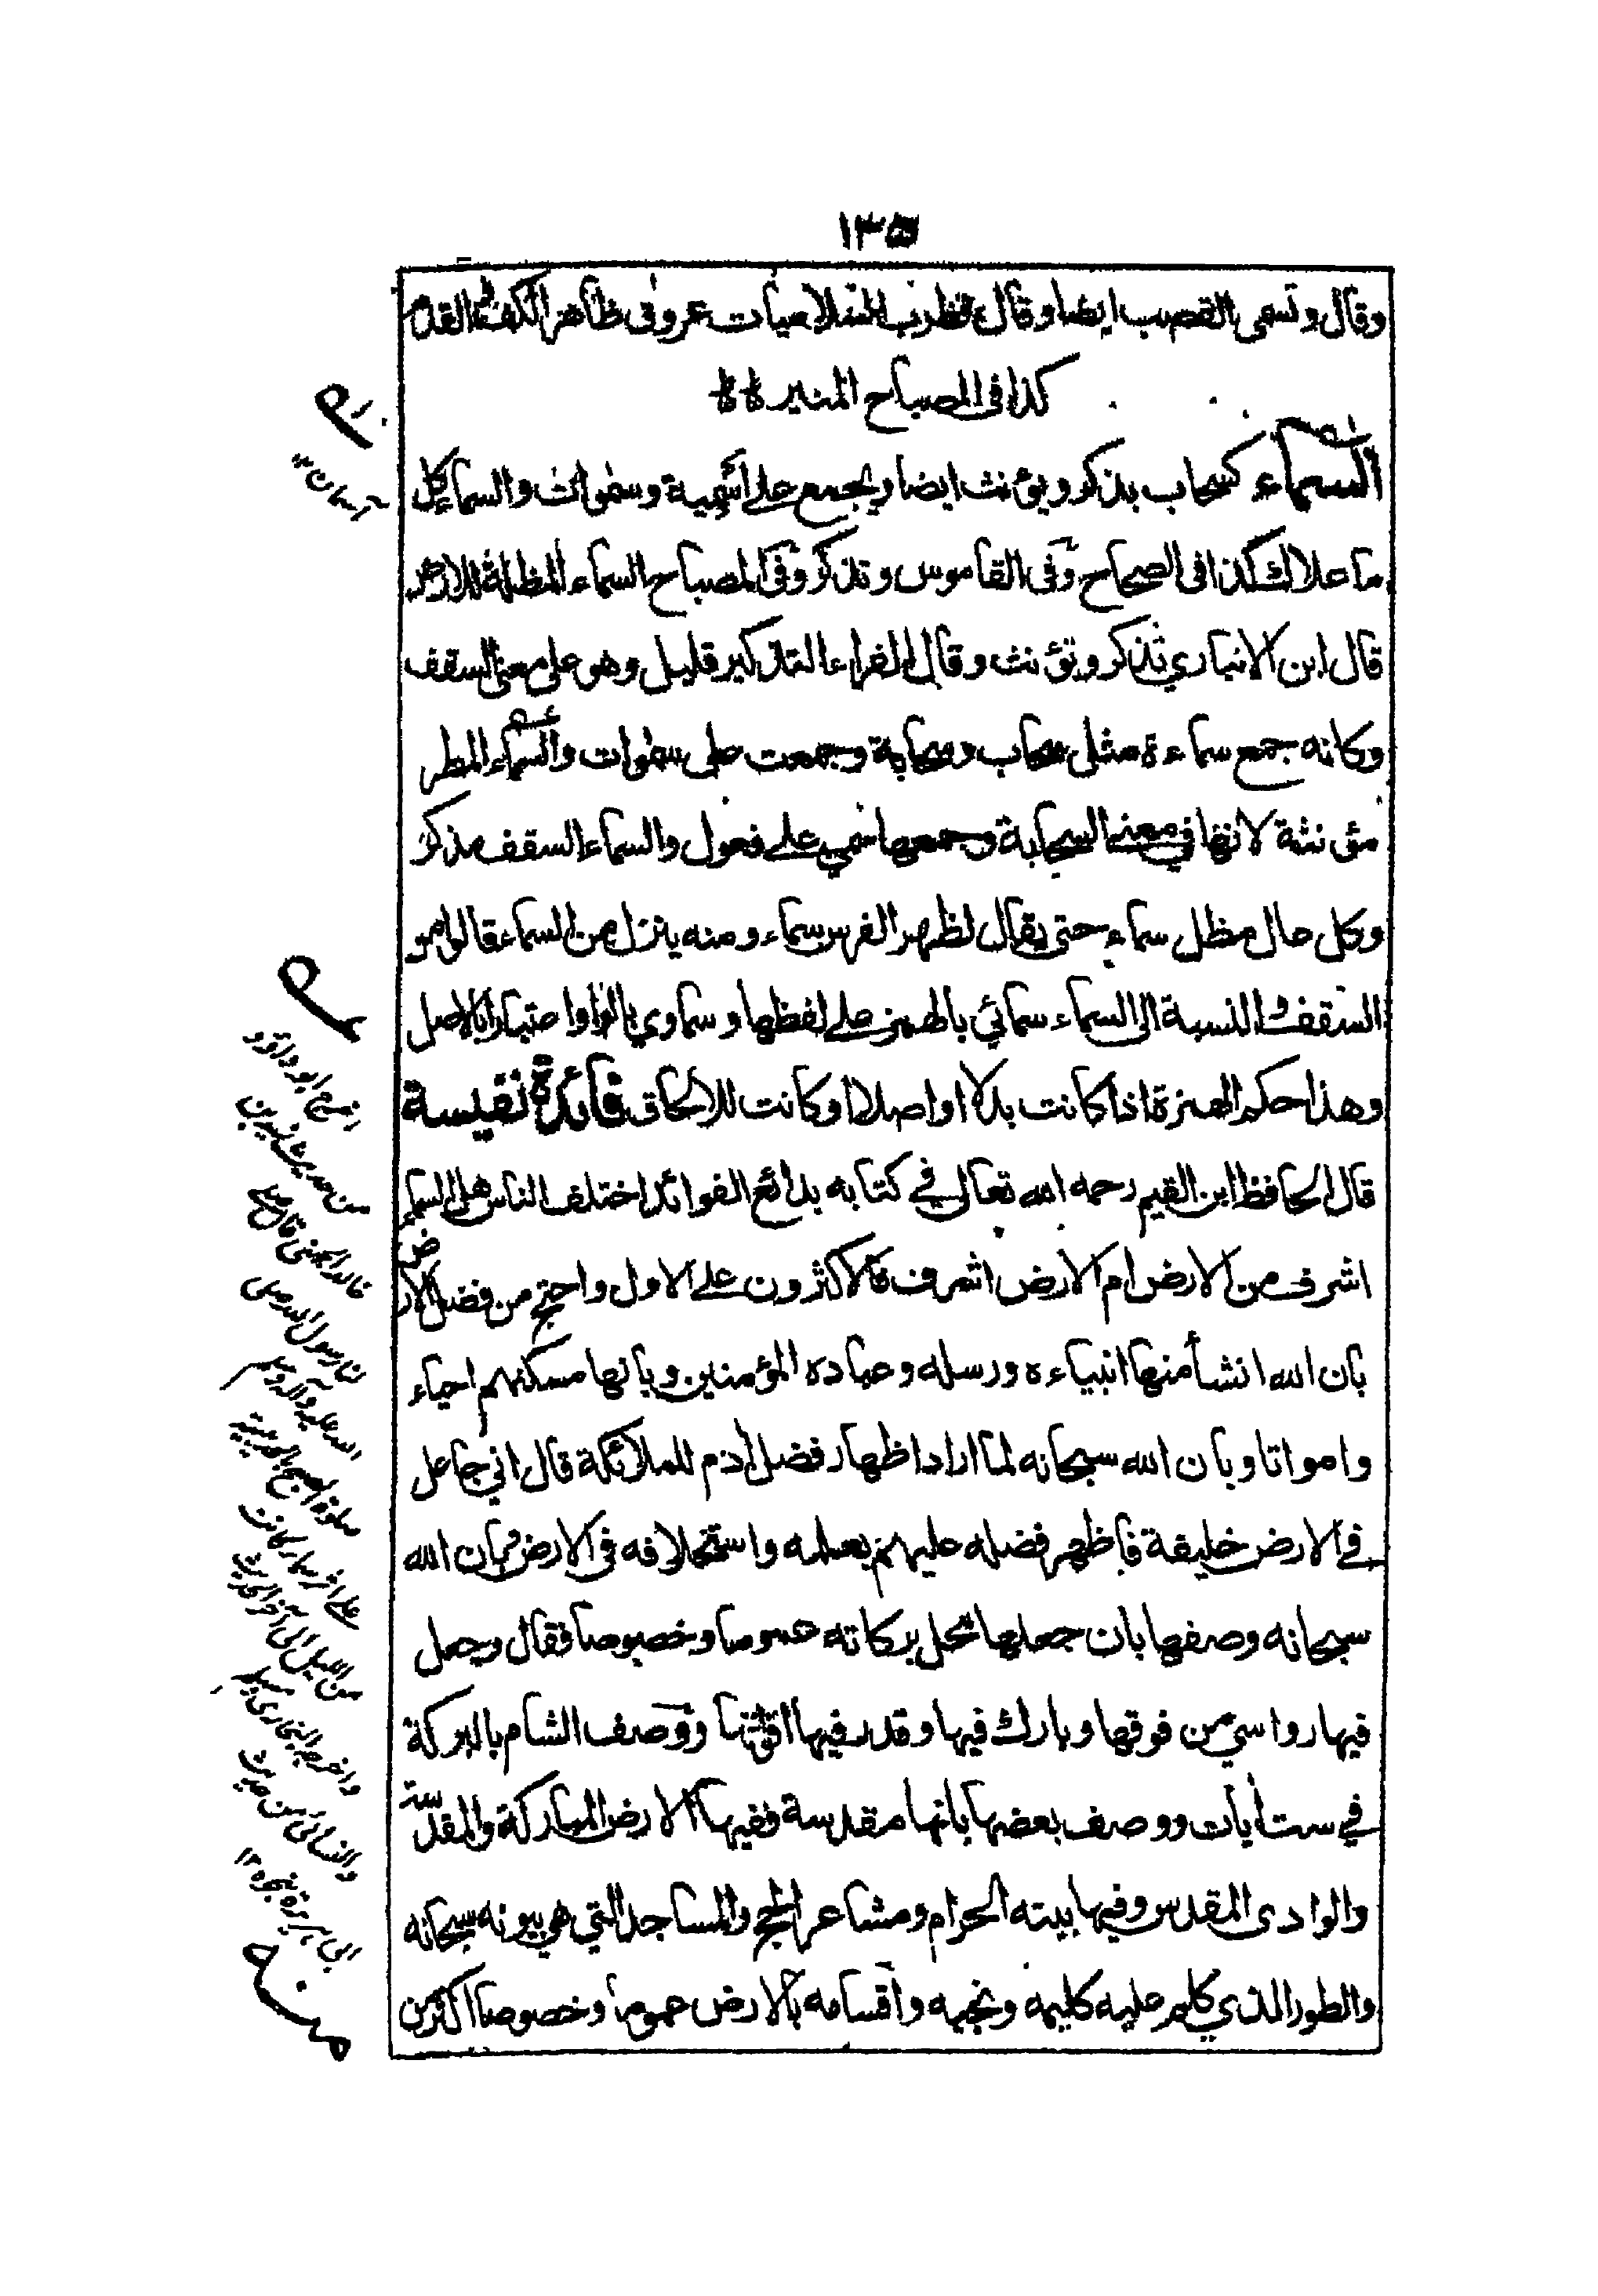 ١٣٥
وقال وتسمى القصب ايضا وقال قطرب السلاميات عروق ظاهر الكف والقدم
كذا فى المصباح المنير
السماء كسحاب يذكر ويؤنث ايضا ويجمع على اسمية وسموات والسماء كل
ما علاك كذا فى الصحاح وفى القاموس وتذكر وفى المصباح السماء المظلة للارض
قال ابن الانباري تذكر وتؤنث وقال الفراء التذكير قليل وهو على معنى السقف
وكانه جمع سماءة مثل سحاب وسحابة وجمعت على سموات والسماء المطر
مؤنثة لانها في معنى السحابة وجمعها سمي على فعول والسماء السقف مذكر
وكل عال مظل سماء حتى يقال لظهر الفرس سماء ومنه ينزل من السماء قالوا من
السقف والنسبة الى السماء سمائي بالهمز على لفظها وسماوي بالواو اعتبارا بالاصل
وهذا حكم الهمزة اذا كانت بدلا او اصلا او كانت للالحاق فائدة نفيسة
قال الحافظ ابن القيم رحمه الله تعالى في كتابه بدائع الفوائد اختلف الناس هل السماء
اشرف من الارض ام الارض اشرف فالاكثرون على الاول واحتج من فضل الارض
بان الله انشأ منها انبياءه ورسله وعباده المؤمنين وبانها مسكنهم احياء
وامواتا وبان الله سبحانه لما اراد اظهار فضل ادم للملائكة قال اني جاعل
في الارض خليفة فاظهر فضله عليهم بعلمه واستخلافه فى الارض وبان الله
سبحانه وصفها بان جعلها محل بركاته عموما وخصوصا فقال وجعل
فيها رواسي من فوقها وبارك فيها وقدر فيها اقواتها ووصف الشام بالبركة
في ست ايات ووصف بعضها بانها مقدسة ففيها الارض المباركة والمقدسة
والوادى المقدس وفيها بيته الحرام ومشاعر الحج والمساجد التي هي بيوته سبحانه
والطور الذي كلم عليه كليمه ونجيه واقسامه بالارض عموما وخصوصا اكثر من
اخرج ابو داؤد
من حديث زيد بن
خالد الجهنى قال صلى
لنا رسول الله صلى
الله عليه وآله وسلم
صلوة الصبح بالحديبية
على اثر سماء كانت
من الليل الى آخر الحديث
واخرجه البخاري ومسلم
والنسائى من حديث
ابى هريرة نحوه ١٢